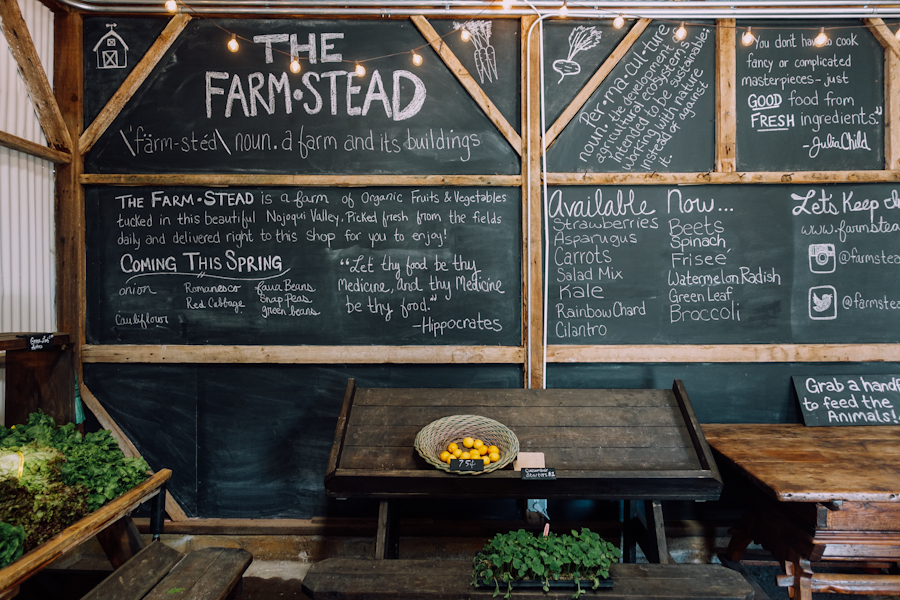 THE
FARM•STEAD
\'färm-stèd\ noun. a farm and its buildings
Per·ma·cul·ture
noun: the development of
agricultural ecosystems
intended to be sustainable:
working with nature
instead of against
it.
"You don't have to cook
fancy or complicated
masterpieces- just
GOOD food from
FRESH ingredients"
-Julia Child
THE FARM•STEAD is a farm of Organic Fruits & Vegetables
tucked in this beautiful Nojoqui Valley. Picked fresh from the fields
daily and delivered right to this shop for you to enjoy!
COMING THIS SPRING
onion
Cauliflower
Romanesco
Red Cabbage
fava Beans
Snap Peas
green beans
"Let thy food be thy
Medicine, and thy Medicine
be thy food."
-Hippocrates
Available Now...
Strawberries
Asparagus
Carrots
Salad Mix
Kale
Rainbow Chard
Cilantro
Beets
Spinach
Friseé
Watermelon Radish
Green Leaf
Broccoli
Let's Keep
www.farmstea
@farmstea
@farmstea
Grab a handf
to feed the
Animals!
75¢